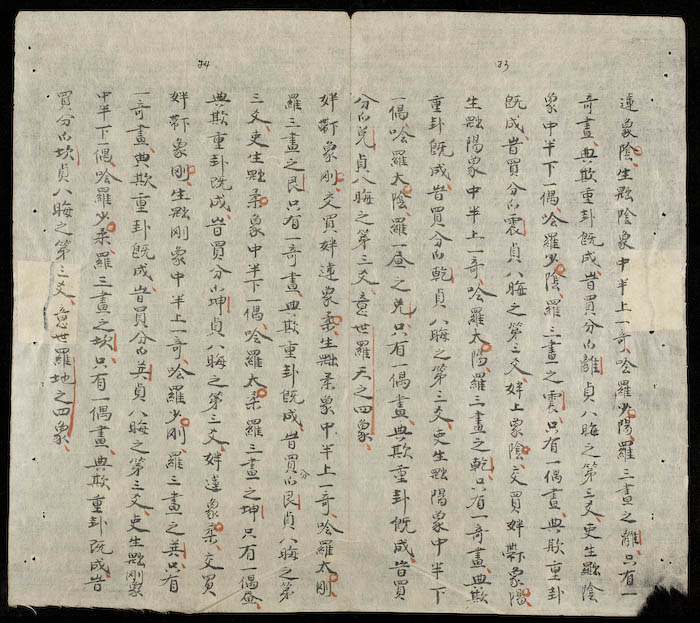 連象陰、生 陰象中半上一奇、唅羅少陽、羅三畫之離、只有一
奇畫、典欺重卦旣成、昔買分 離貞八晦之第三爻、吏生 陰
象中半下一偶、唅羅少陰、羅三畫之震、只有一偶畫、典欺重卦
旣成、昔買分 震貞八晦之第三爻、姅上象陰、交買姅 象陽、
生 陽象中半上一奇、唅羅太陽、羅三畫之乾、只有一奇畫、典欺
重卦旣成、昔買分 乾貞八晦之第三爻、吏生 陽象中半下
一偶、唅羅太陰、羅 之兌、只有一偶畫、典欺重卦旣成、昔買
分 兌貞八晦之第三爻、意世羅天之四象、
姅 象剛、交買姅連象柔、生 柔象中半上一奇、唅羅太剛、
羅三畫之艮、只有一奇畫、典欺重卦旣成、昔買分 艮貞八晦之第
三爻、吏生 柔象中半下一偶、唅羅太柔、羅三畫之坤、只有一偶畫、
典欺重卦旣成、昔買分 坤貞八晦之第三爻、姅連象柔、交買
姅 象剛、生 剛象中半上一奇、唅羅少剛、羅三畫之巽、只有
一奇畫、典欺重卦旣成、昔買分 巽貞八晦之第三爻、吏生 剛象
中半下一偶、唅羅少柔、羅三畫之坎、只有一偶畫、典欺重卦旣成、昔
買分 坎貞八晦之第三爻、意世羅地之四象、